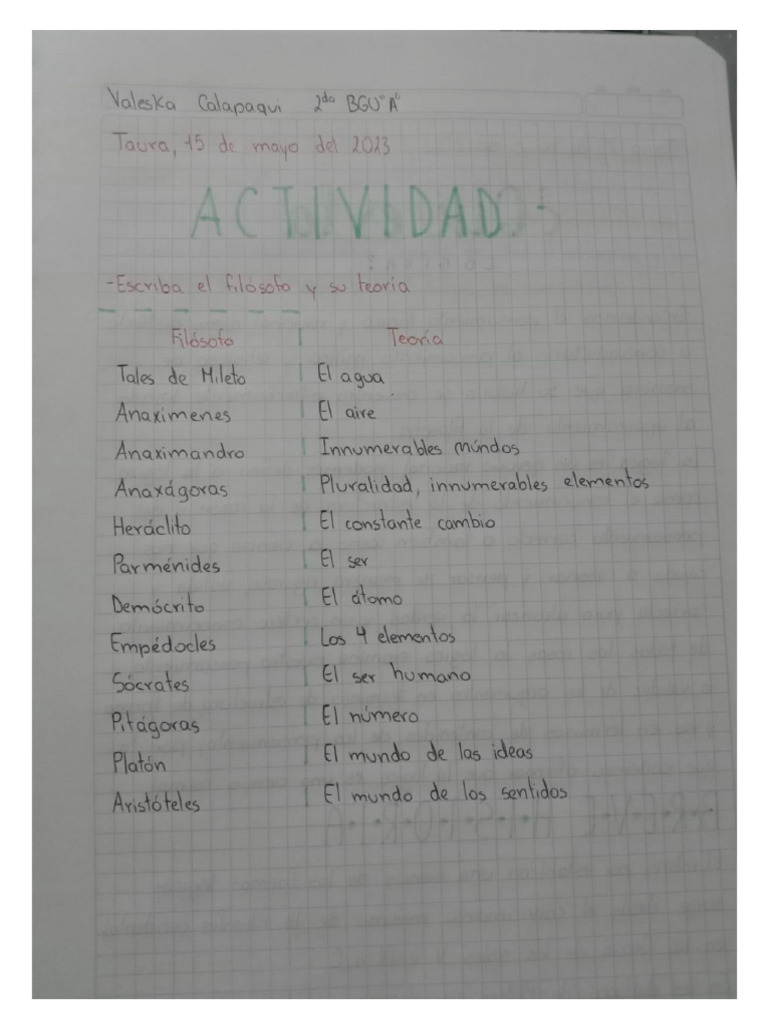 Valeska Calapaqui 2do BGU "A"
Taura, 15 de mayo del 2023
ACTIVIDAD.
-Escriba el filósofo y su teoría
Filósofo | Teoría
Tales de Mileto | El agua
Anaxímenes | El aire
Anaximandro | Innumerables múndos
Anaxágoras | Pluralidad, innumerables elementos
Heráclito | El constante cambio
Parménides | El ser
Demócrito | El átomo
Empédocles | Los 4 elementos
Sócrates | El ser humano
Pitágoras | El número
Platón | El mundo de las ideas
Aristóteles | El mundo de los sentidos